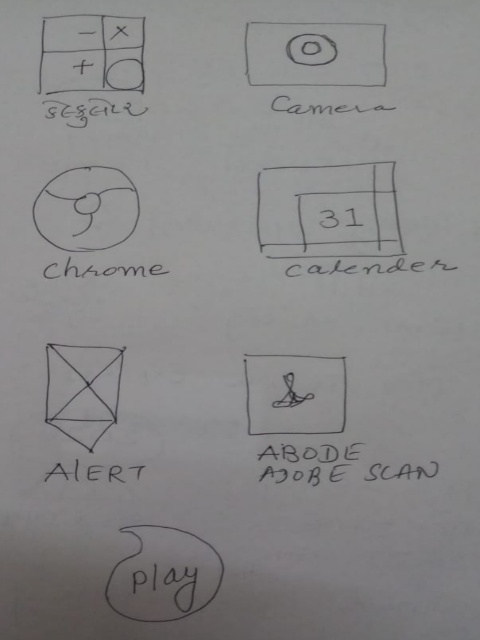 - ×
+
કેલ્ક્યુલેટર
Camera
Chrome
31
Calender
AlERT
ABODE
ADOBE SCAN
play